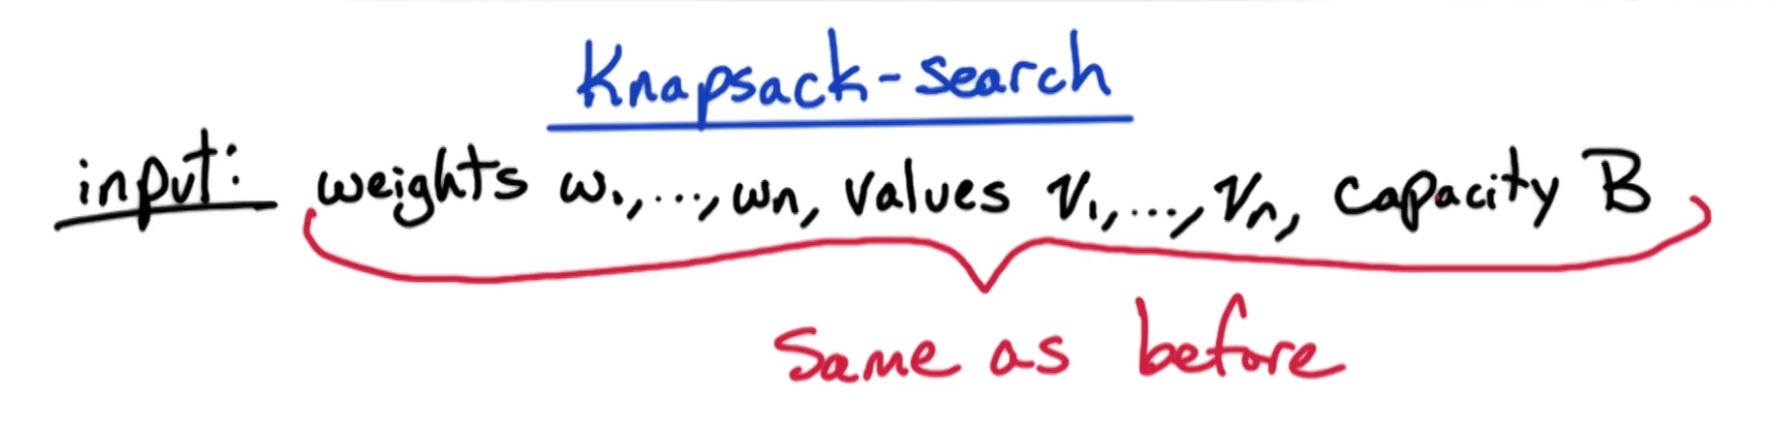 Knapsack-search
input: weights w₁,...,wn, values v₁,...,vn, capacity B
Same as before